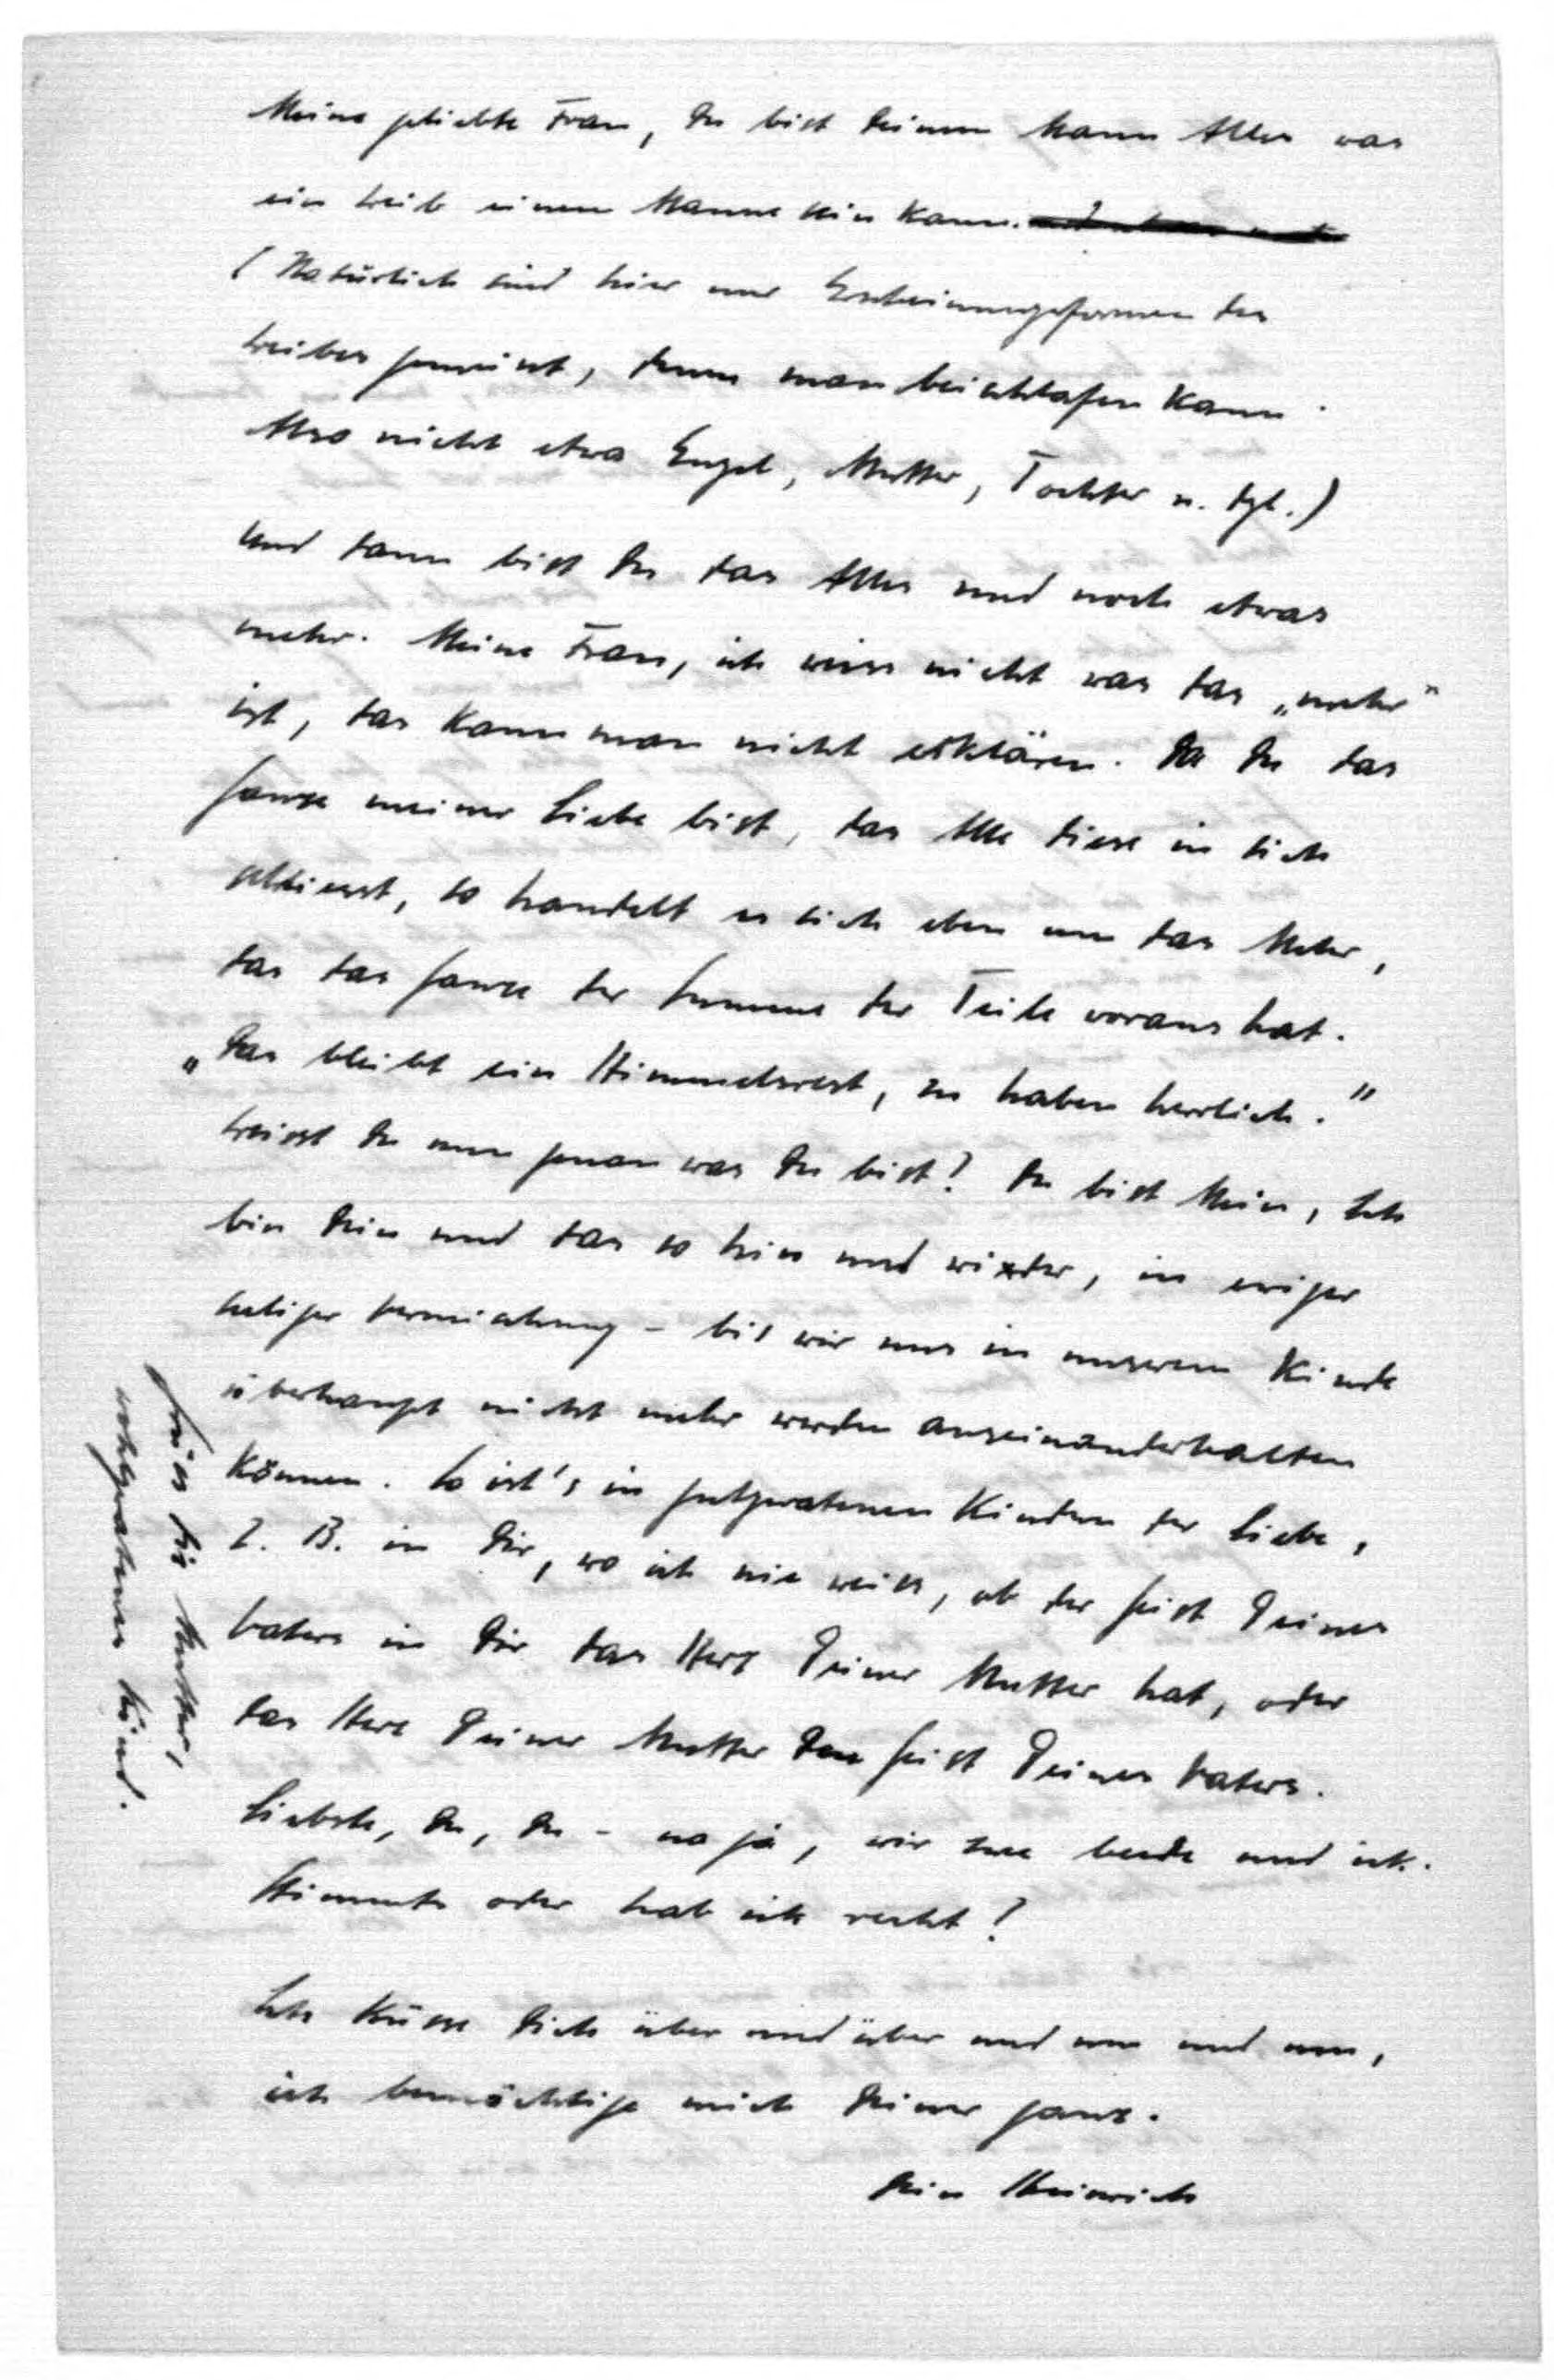 Meine geliebte Frau, Du bist Deinem Mann Alles was
ein Weib einem Manne sein kann.
(Natürlich sind hier nur Erscheinungsformen des
Weibes gemeint, denen man beischlafen kann.
Also nicht etwa Engel, Mutter, Tochter u. dgl.)
Und dann bist Du das Alles und noch etwas
mehr. Meine Frau, ich weiss nicht was das „mehr"
ist, das kann man nicht erklären. Da Du das
Ganze meiner Liebe bist, das Alle diese in sich
schliesst, so handelt es sich eben um das Mehr,
das das Ganze der Summe der Teile voraus hat.
„Das bleibt ein Himmelsrest, zu haben herrlich."
Weisst Du nun genau was Du bist? Du bist Mein, Ich
bin Dein und das so hin und wieder, in ewiger
seliger Vermischung – bis wir uns in unserem Kinde
überhaupt nicht mehr werden auseinanderhalten
können. So ist's in gutgeratenen Kindern der Liebe,
z. B. in Dir, wo ich nie weiss, ob der Geist Deines
Vaters in Dir das Herz Deiner Mutter hat, oder
das Herz Deiner Mutter den Geist Deines Vaters.
Liebste, Du, Du – na ja, wir zwee beede und ick.
Stimmts oder hab ick recht?
Ich küsse Dich über und über und um und um,
ich bemächtige mich Deiner ganz.
Dein Heinrich
Grüss die Mutter,
wohlgeratenes Kind.